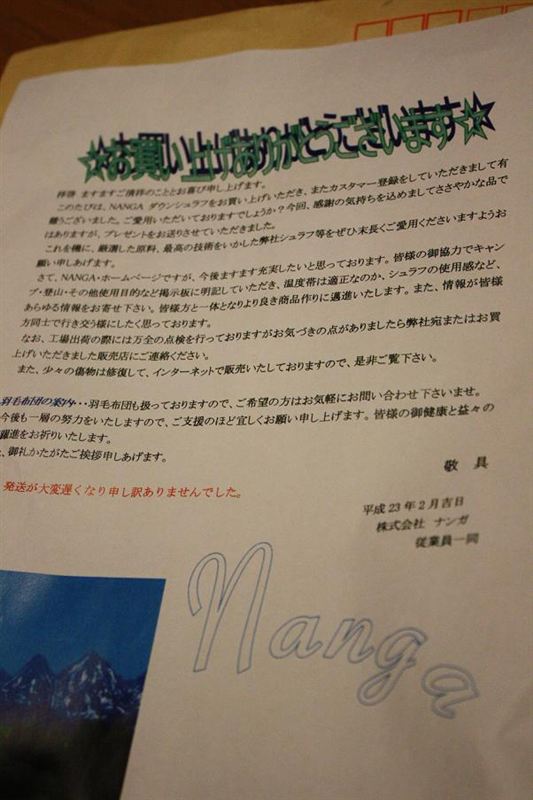 ☆お買い上げありがとうございます☆
拝啓 ますますご清祥のこととお喜び申し上げます。
このたびは、NANGA ダウンシュラフをお買い上げいただき、またカスタマー登録をしていただきまして有
難うございました。ご愛用いただいておりますでしょうか?今回、感謝の気持ちを込めましてささやかな品で
はありますが、プレゼントをお送りさせていただきました。
これを機に、厳選した原料、最高の技術をいかした弊社シュラフ等をぜひ末長くご愛用くださいますようお
願い申しあげます。
さて、NANGA・ホームページですが、今後ますます充実したいと思っております。皆様の御協力でキャン
プ・登山・その他使用目的など掲示板に明記していただき、温度帯は適正なのか、シュラフの使用感など、
あらゆる情報をお寄せ下さい。皆様方と一体となりより良き商品作りに邁進いたします。また、情報が皆様
方同士で行き交う様にしたく思っております。
なお、工場出荷の際には万全の点検を行っておりますがお気づきの点がありましたら弊社宛またはお買
上げいただきました販売店にご連絡ください。
また、少々の傷物は修復して、インターネットで販売いたしておりますので、是非ご覧下さい。
羽毛布団の案内・・・羽毛布団も扱っておりますので、ご希望の方はお気軽にお問い合わせ下さいませ。
今後も一層の努力をいたしますので、ご支援のほど宜しくお願い申し上げます。皆様の御健康と益々の
躍進をお祈りいたします。
、御礼かたがたご挨拶申しあげます。
敬 具
発送が大変遅くなり申し訳ありませんでした。
平成 23 年 2 月吉日
株式会社 ナンガ
従業員一同
Nanga